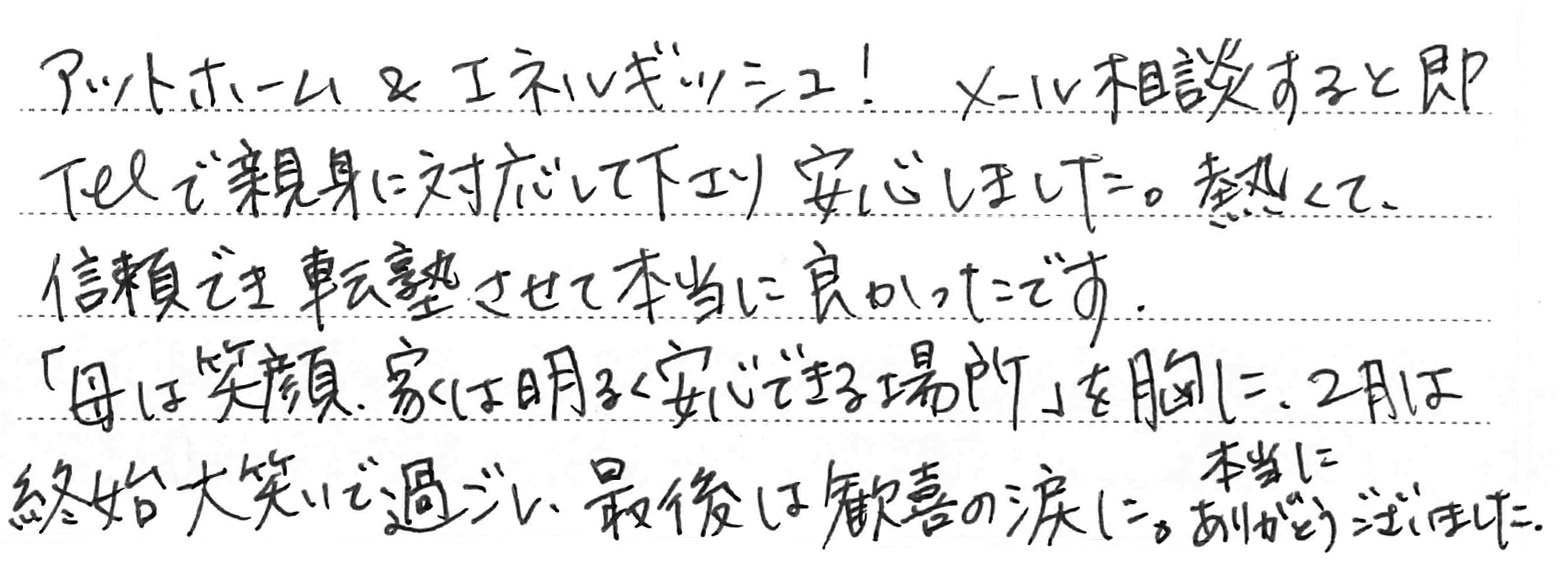 アットホーム & エネルギッシュ! メール相談すると即
Telで親身に対応して下エり 安心しました。熱くて、
信頼でき 転塾させて本当に良かったです.
「母は笑顔、家は明るく安心できる場所」を胸に、2月は
終始大笑いで過ごし、最後は歓喜の涙に。本当に
ありがとうございました.